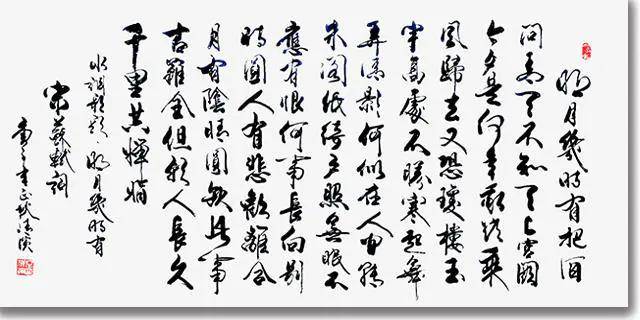 明月幾時有把酒
問青天不知天上宮闕
今夕是何年我欲乘
風歸去又恐瓊樓玉
宇高處不勝寒起舞
弄清影何似在人間轉
朱閣低綺戶照無眠不
應有恨何事長向別
時圓人有悲歡離合
月有陰晴圓缺此事
古難全但願人長久
千里共嬋娟
水調歌頭 明月幾時有
宋蘇軾詞